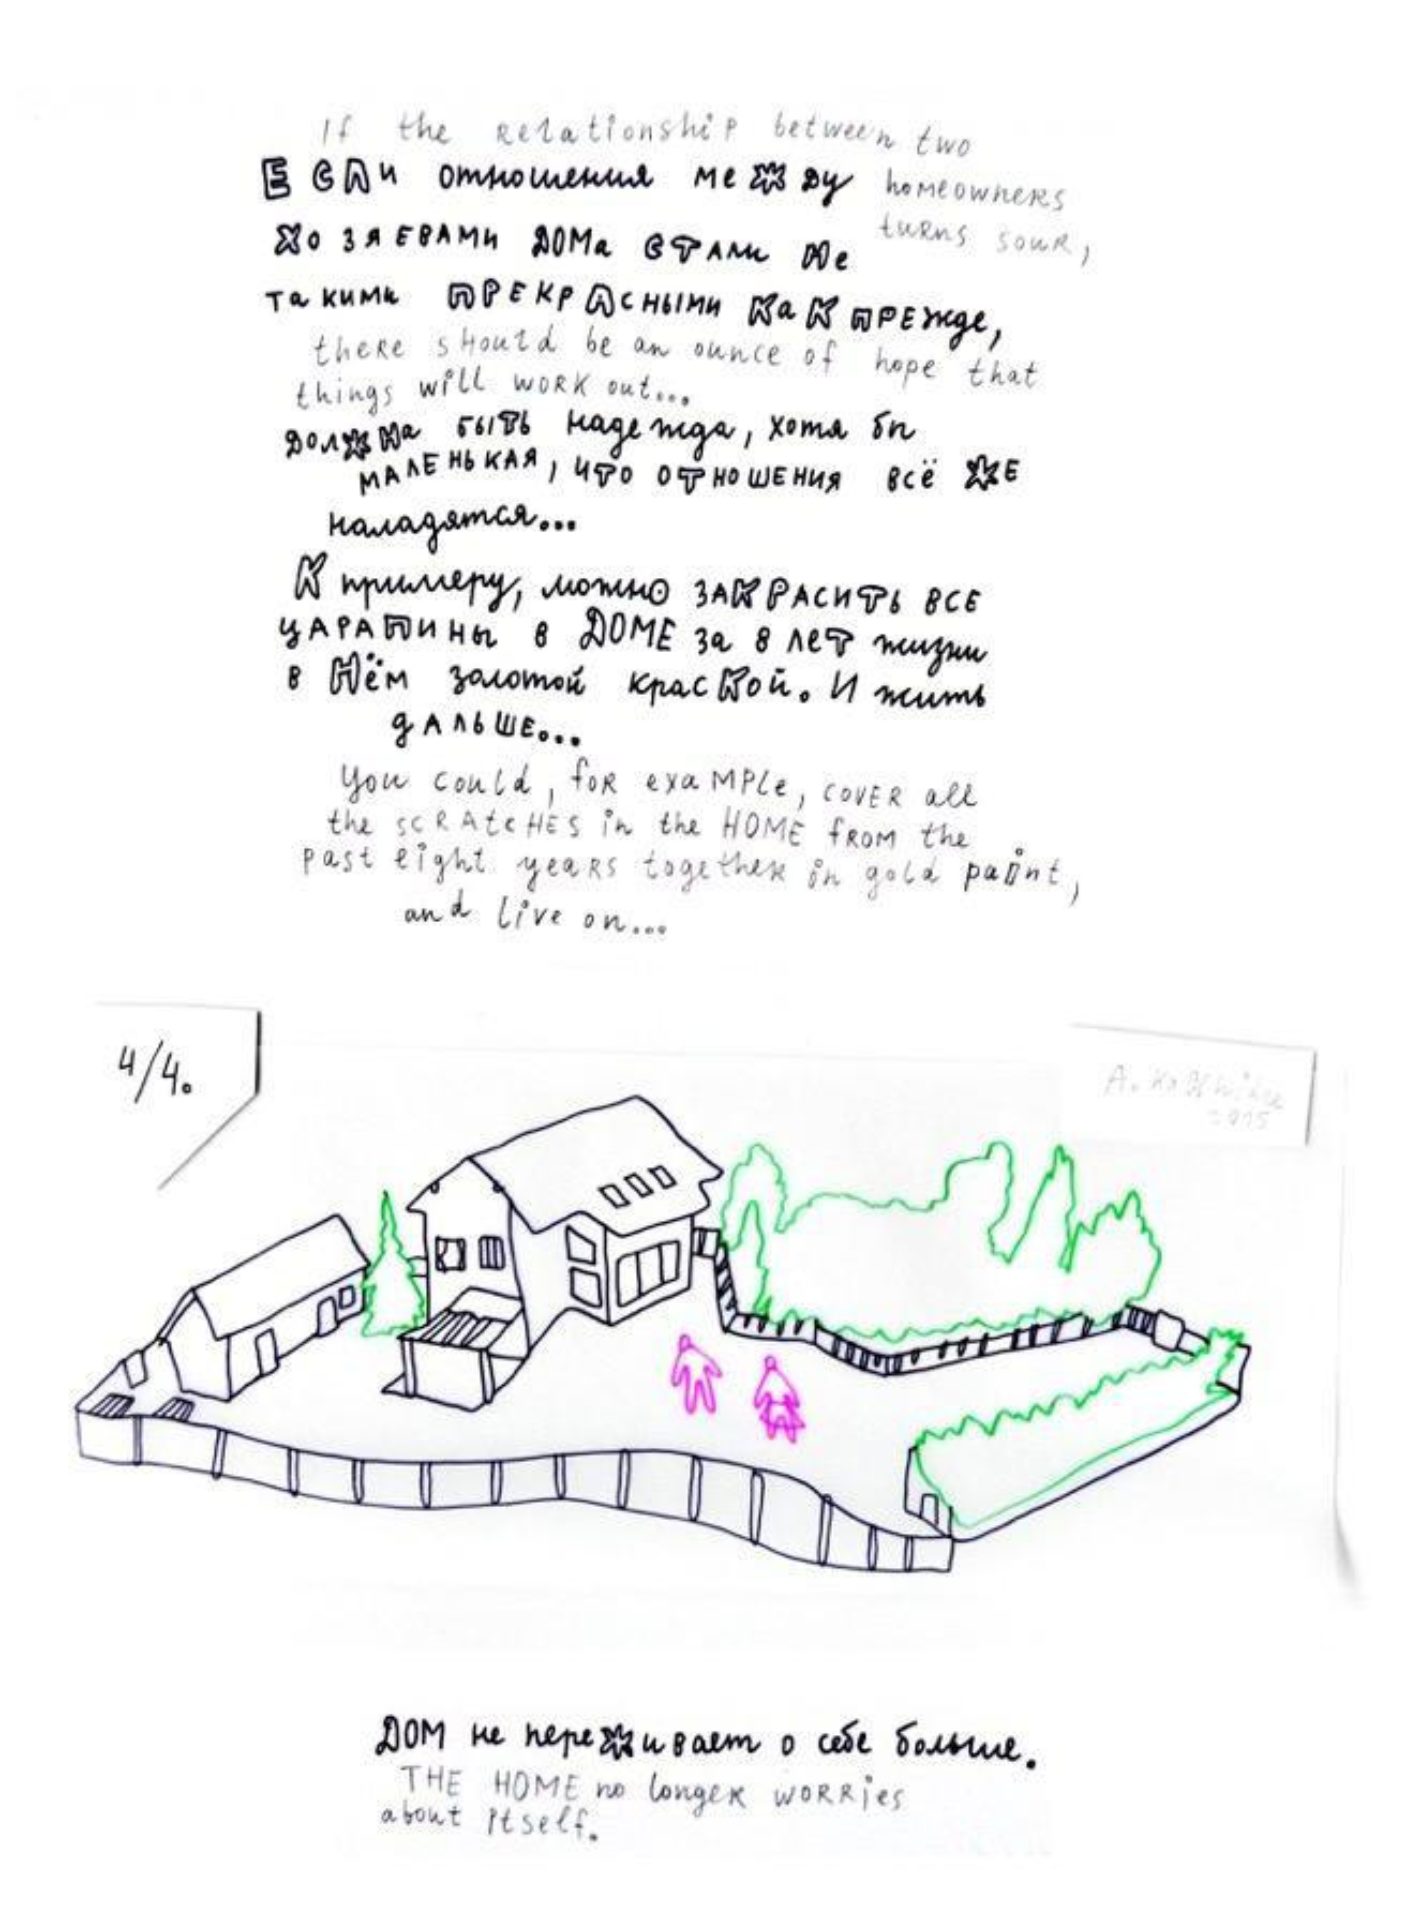 If the relationship between two
Если отношения между
homeowners
turns sour,
хозяевами дома стали не
такими прекрасными как прежде,
there should be an ounce of hope that
things will work out...
должна быть надежда, хотя бы
маленькая, что отношения всё же
наладятся...
К примеру, можно закрасить все
царапины в доме за 8 лет жизни
в нём золотой краской. И жить
дальше...
You could, for example, cover all
the scratches in the HOME from the
past eight years together in gold paint,
and live on...
4/4.
A.
2015
Дом не переживает о себе больше.
THE HOME no longer worries
about itself.